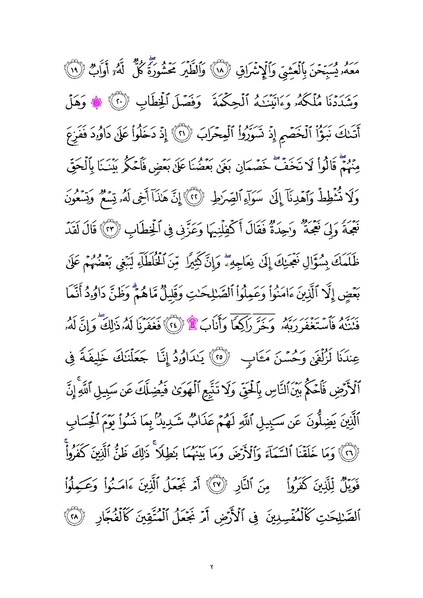 مَعَهُۥ يُسَبِّحْنَ بِٱلْعَشِىِّ وَٱلْإِشْرَاقِ ۝١٨ وَٱلطَّيْرَ مَحْشُورَةًۖ كُلٌّ لَّهُۥٓ أَوَّابٌ ۝١٩
وَشَدَدْنَا مُلْكَهُۥ وَءَاتَيْنَٰهُ ٱلْحِكْمَةَ وَفَصْلَ ٱلْخِطَابِ ۝٢٠ ۞ وَهَلْ
أَتَىٰكَ نَبَؤُا۟ ٱلْخَصْمِ إِذْ تَسَوَّرُوا۟ ٱلْمِحْرَابَ ۝٢١ إِذْ دَخَلُوا۟ عَلَىٰ دَاوُۥدَ فَفَزِعَ
مِنْهُمْۖ قَالُوا۟ لَا تَخَفْۖ خَصْمَانِ بَغَىٰ بَعْضُنَا عَلَىٰ بَعْضٍ فَٱحْكُم بَيْنَنَا بِٱلْحَقِّ
وَلَا تُشْطِطْ وَٱهْدِنَآ إِلَىٰ سَوَآءِ ٱلصِّرَٰطِ ۝٢٢ إِنَّ هَٰذَآ أَخِى لَهُۥ تِسْعٌ وَتِسْعُونَ
نَعْجَةً وَلِىَ نَعْجَةٌ وَٰحِدَةٌ فَقَالَ أَكْفِلْنِيهَا وَعَزَّنِى فِى ٱلْخِطَابِ ۝٢٣ قَالَ لَقَدْ
ظَلَمَكَ بِسُؤَالِ نَعْجَتِكَ إِلَىٰ نِعَاجِهِۦۖ وَإِنَّ كَثِيرًا مِّنَ ٱلْخُلَطَآءِ لَيَبْغِى بَعْضُهُمْ عَلَىٰ
بَعْضٍ إِلَّا ٱلَّذِينَ ءَامَنُوا۟ وَعَمِلُوا۟ ٱلصَّٰلِحَٰتِ وَقَلِيلٌ مَّا هُمْۗ وَظَنَّ دَاوُۥدُ أَنَّمَا
فَتَنَّٰهُ فَٱسْتَغْفَرَ رَبَّهُۥ وَخَرَّ رَاكِعًا وَأَنَابَ ۩ ۝٢٤ فَغَفَرْنَا لَهُۥ ذَٰلِكَۖ وَإِنَّ لَهُۥ
عِندَنَا لَزُلْفَىٰ وَحُسْنَ مَـَٔابٍ ۝٢٥ يَٰدَاوُۥدُ إِنَّا جَعَلْنَٰكَ خَلِيفَةً فِى
ٱلْأَرْضِ فَٱحْكُم بَيْنَ ٱلنَّاسِ بِٱلْحَقِّ وَلَا تَتَّبِعِ ٱلْهَوَىٰ فَيُضِلَّكَ عَن سَبِيلِ ٱللَّهِۚ إِنَّ
ٱلَّذِينَ يَضِلُّونَ عَن سَبِيلِ ٱللَّهِ لَهُمْ عَذَابٌ شَدِيدٌۢ بِمَا نَسُوا۟ يَوْمَ ٱلْحِسَابِ
۝٢٦ وَمَا خَلَقْنَا ٱلسَّمَآءَ وَٱلْأَرْضَ وَمَا بَيْنَهُمَا بَٰطِلًاۚ ذَٰلِكَ ظَنُّ ٱلَّذِينَ كَفَرُوا۟ۚ
فَوَيْلٌ لِّلَّذِينَ كَفَرُوا۟ مِنَ ٱلنَّارِ ۝٢٧ أَمْ نَجْعَلُ ٱلَّذِينَ ءَامَنُوا۟ وَعَمِلُوا۟
ٱلصَّٰلِحَٰتِ كَٱلْمُفْسِدِينَ فِى ٱلْأَرْضِ أَمْ نَجْعَلُ ٱلْمُتَّقِينَ كَٱلْفُجَّارِ ۝٢٨
٢